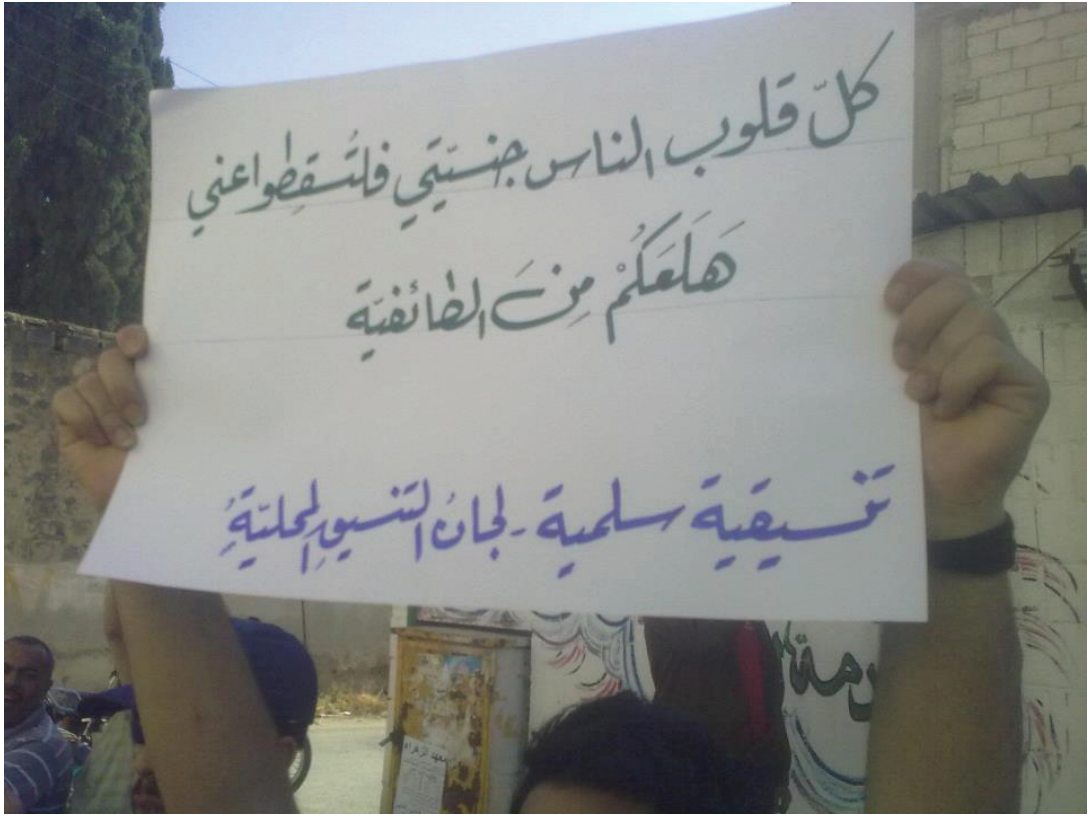 كلّ قلوب الناس جنسيّتي فلتُسقِطوا عني
هَلَعَكُمْ مِنَ الطائفيّة
تنسيقية سلمية - لجانُ التنسيقِ المحليّةُِ
معهد الزهراء